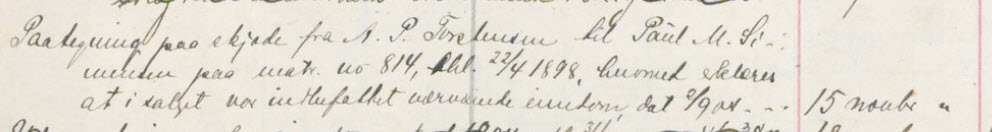 Paategning paa skjøde fra A. P. Torstensen til Paul M. Si-
mensen paa matr. no 814, thl. 22/4 1898, hvormed erklæres
at i salget var indbefattet nærværende eiendom, dat 2/9 04 - - - 15 novbr "